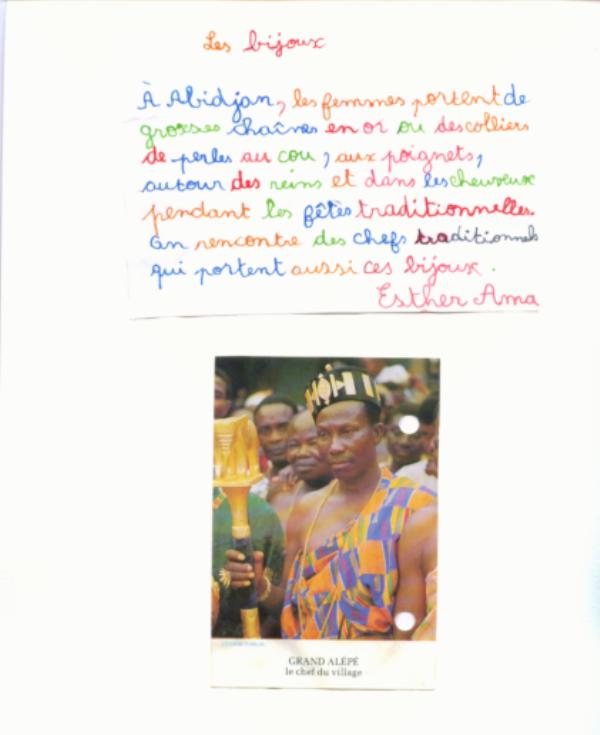 Les bijoux
À Abidjan, les femmes portent de
grosses chaînes en or ou des colliers
de perles au cou, aux poignets,
autour des reins et dans les cheuveux
pendant les fêtes traditionnelles.
on rencontre des chefs traditionnels
qui portent aussi ces bijoux.
Esther Ama
GRAND ALÉPÉ
le chef du village